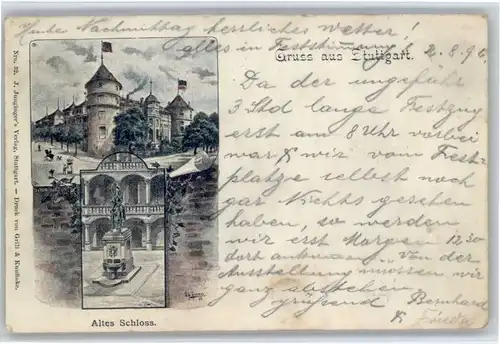 Heute Nachmittag herrliches Wetter!
alles in Feststimmung
Gruss aus Stuttgart.
2.8.96
Da der ungefähr
3 Std lange Festzug
erst um 8 Uhr vorbei
war & wir vom Fest-
platze selbst noch
gar Nichts gesehen
haben, so werden
wir erst Morgen 12.30
dort ankommen. Von der
Ausstellung müssen wir
ganz abstehen
grüssend Bernhard
&
Altes Schloss.
Nro. 32. J. Junginger's Verlag, Stuttgart. — Druck von Grill & Kushoke.